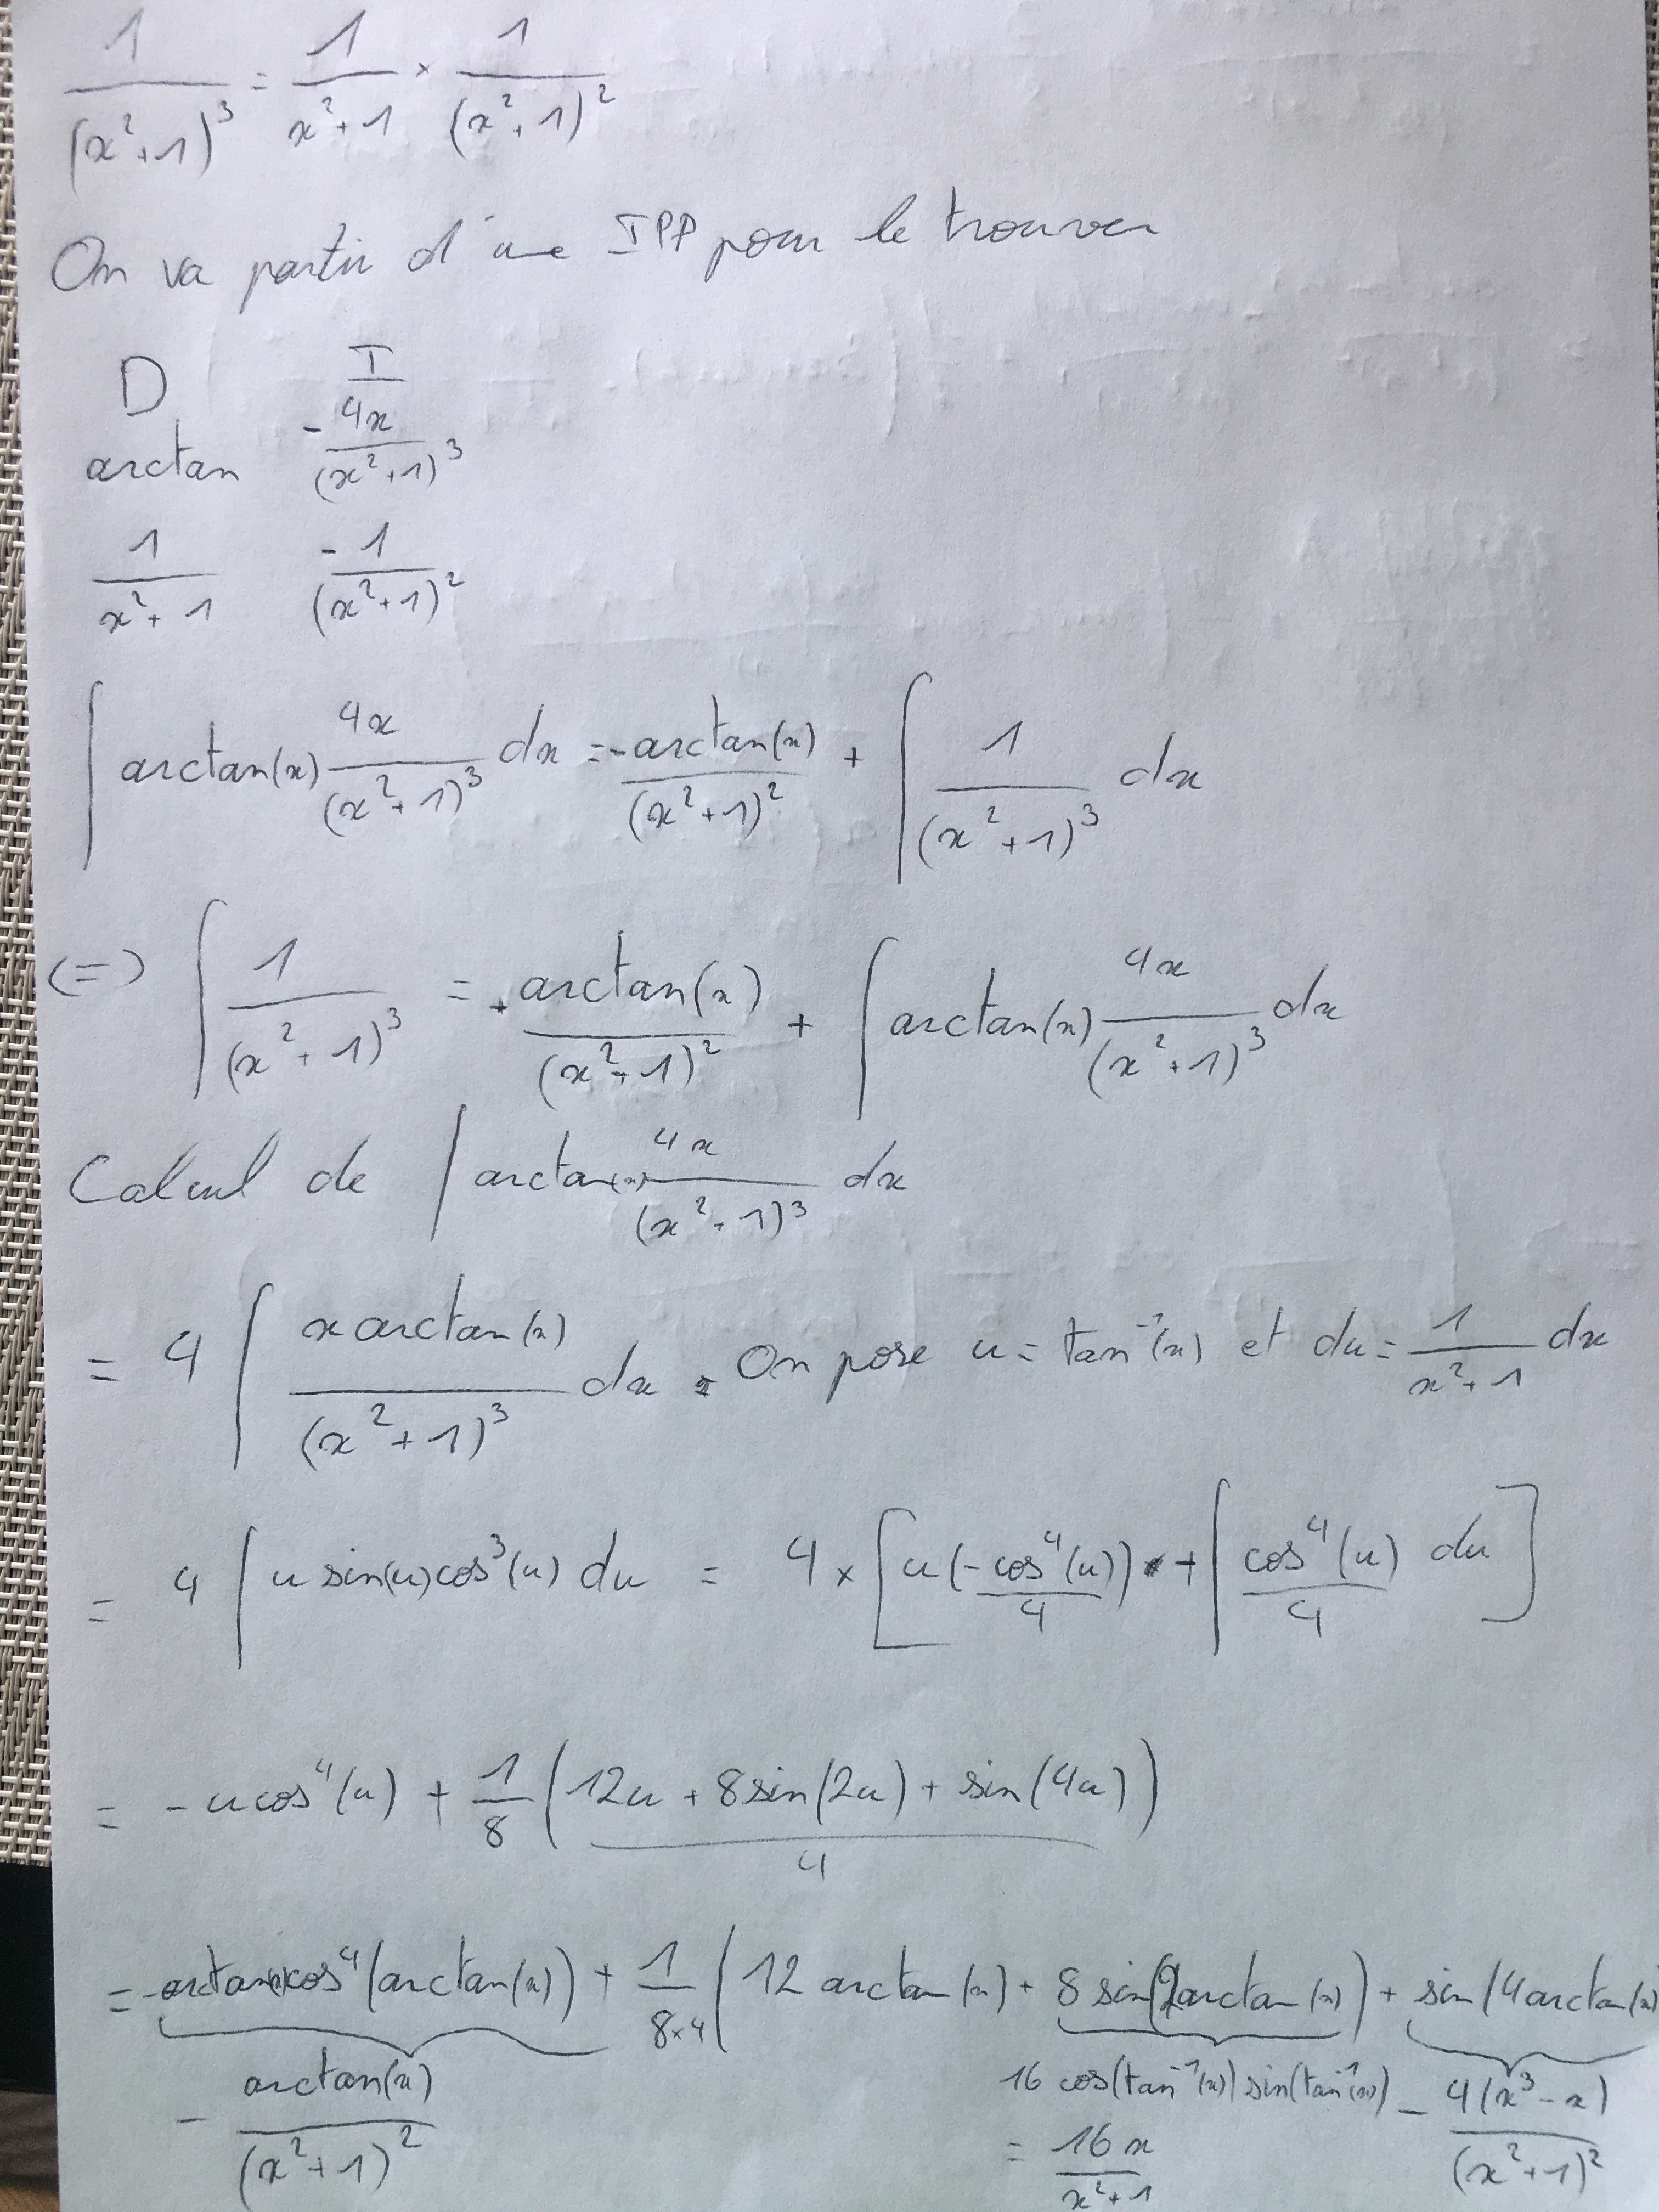 1/(x²+1)³ = 1/(x²+1) × 1/(x²+1)²
On va partir d'une IPP pour le trouver
D I
arctan - 4x/(x²+1)³
1/(x²+1) -1/(x²+1)²
∫ arctan(x) 4x/(x²+1)³ dx = -arctan(x)/(x²+1)² + ∫ 1/(x²+1)³ dx
(=) ∫ 1/(x²+1)³ = + arctan(x)/(x²+1)² + ∫ arctan(x) 4x/(x²+1)³ dx
Calcul de ∫ arctan(x) 4x/(x²+1)³ dx
= 4 ∫ x arctan(x)/(x²+1)³ dx . On pose u = tan⁻¹(x) et du = 1/(x²+1) dx
= 4 ∫ u sin(u) cos³(u) du = 4 × [ u (-cos⁴(u)/4) + ∫ cos⁴(u)/4 du ]
= - u cos⁴(u) + 1/8 ( (12u + 8 sin(2u) + sin(4u))/4 )
= -arctan(x) cos⁴(arctan(x)) + 1/(8×4) ( 12 arctan(x) + 8 sin(2arctan(x)) + sin(4arctan(x)
- arctan(x)/(x²+1)² 16 cos(tan⁻¹(x)) sin(tan⁻¹(x)) - 4(x³-x)/(x²+1)²
= 16x/(x²+1)